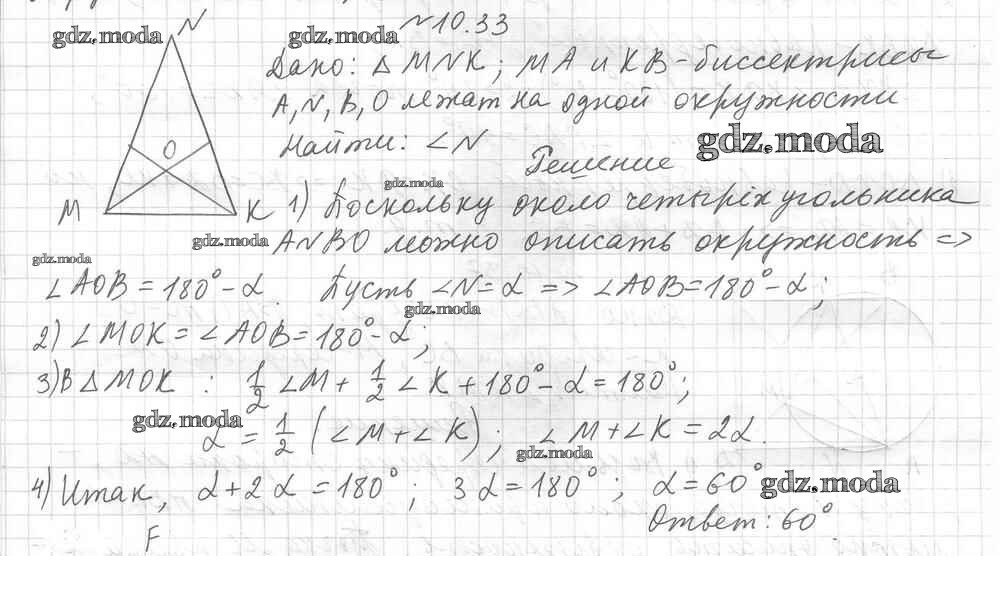 N
№10.33
gdz.moda gdz.moda
Дано: △ MNK; MA и KB - биссектрисы
A, N, B, O лежат на одной окружности
Найти: ∠N
gdz.moda
Решение
O
gdz.moda
M K 1) Поскольку около четырёхугольника
gdz.moda ANBO можно описать окружность =>
gdz.moda
∠AOB = 180° - α. Пусть ∠N = α => ∠AOB = 180° - α;
gdz.moda
2) ∠MOK = ∠AOB = 180° - α;
3) В △MOK : 1/2 ∠M + 1/2 ∠K + 180° - α = 180°;
gdz.moda
α = 1/2 (∠M + ∠K); ∠M + ∠K = 2α.
gdz.moda
4) Итак, α + 2α = 180°; 3α = 180°; α = 60° gdz.moda
Ответ: 60°
F